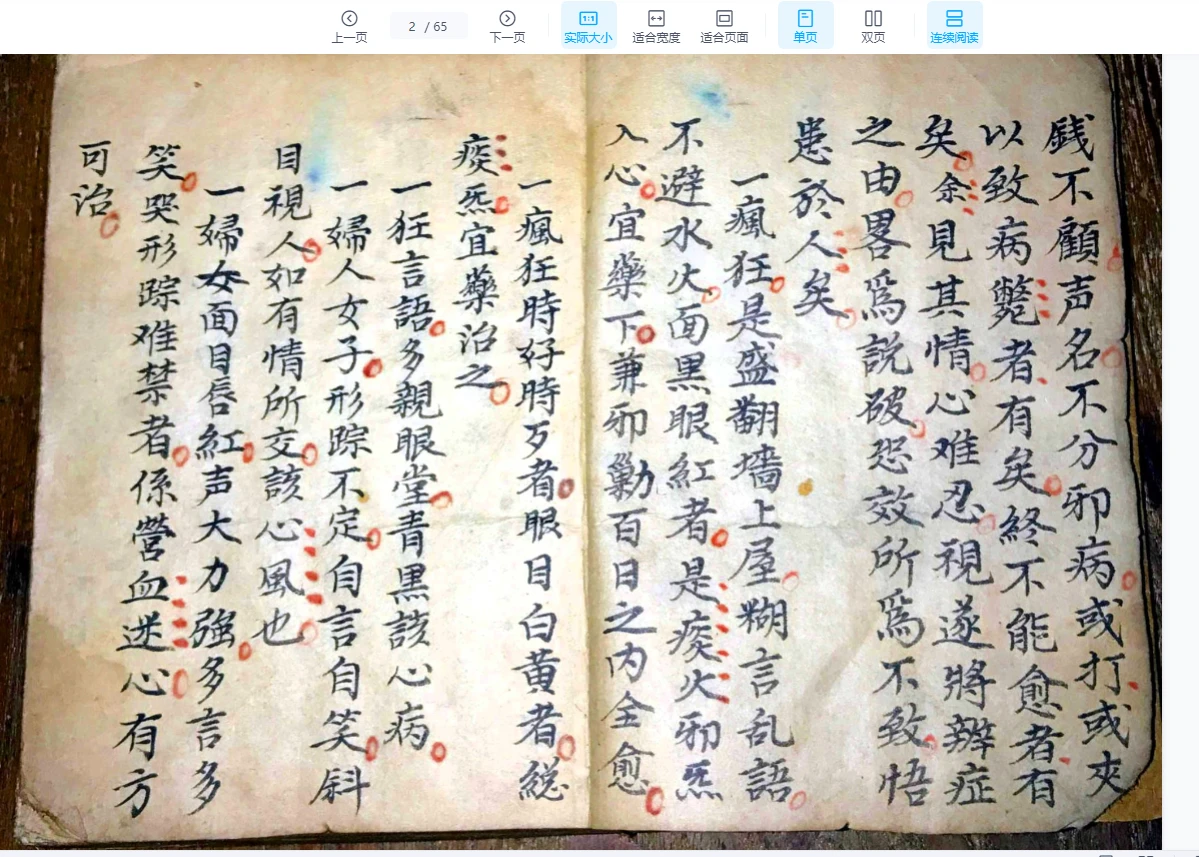 上一页
2 / 65
下一页
实际大小
适合宽度
适合页面
单页
双页
连续阅读
銭不顧声名不分邪病或打或夾
以致病斃者有矣終不能愈者有
矣余見其情心难忍視遂將辦症
之由畧為説破恐效所為不致悟
患於人矣
一瘋狂是盛翻墻上屋糊言乱語
不避水火面黒眼紅者是痰火邪炁
入心宜藥下兼邪勦百日之内全愈
一瘋狂時好時歹者眼目白黄者総
痰炁宜藥治之
一狂言語多親眼堂青黒該心病
一婦人女子形踪不定自言自笑斜
目視人如有情所交該心風也
一婦女面目唇紅声大力強多言多
笑哭形踪难禁者係營血迷心有方
可治